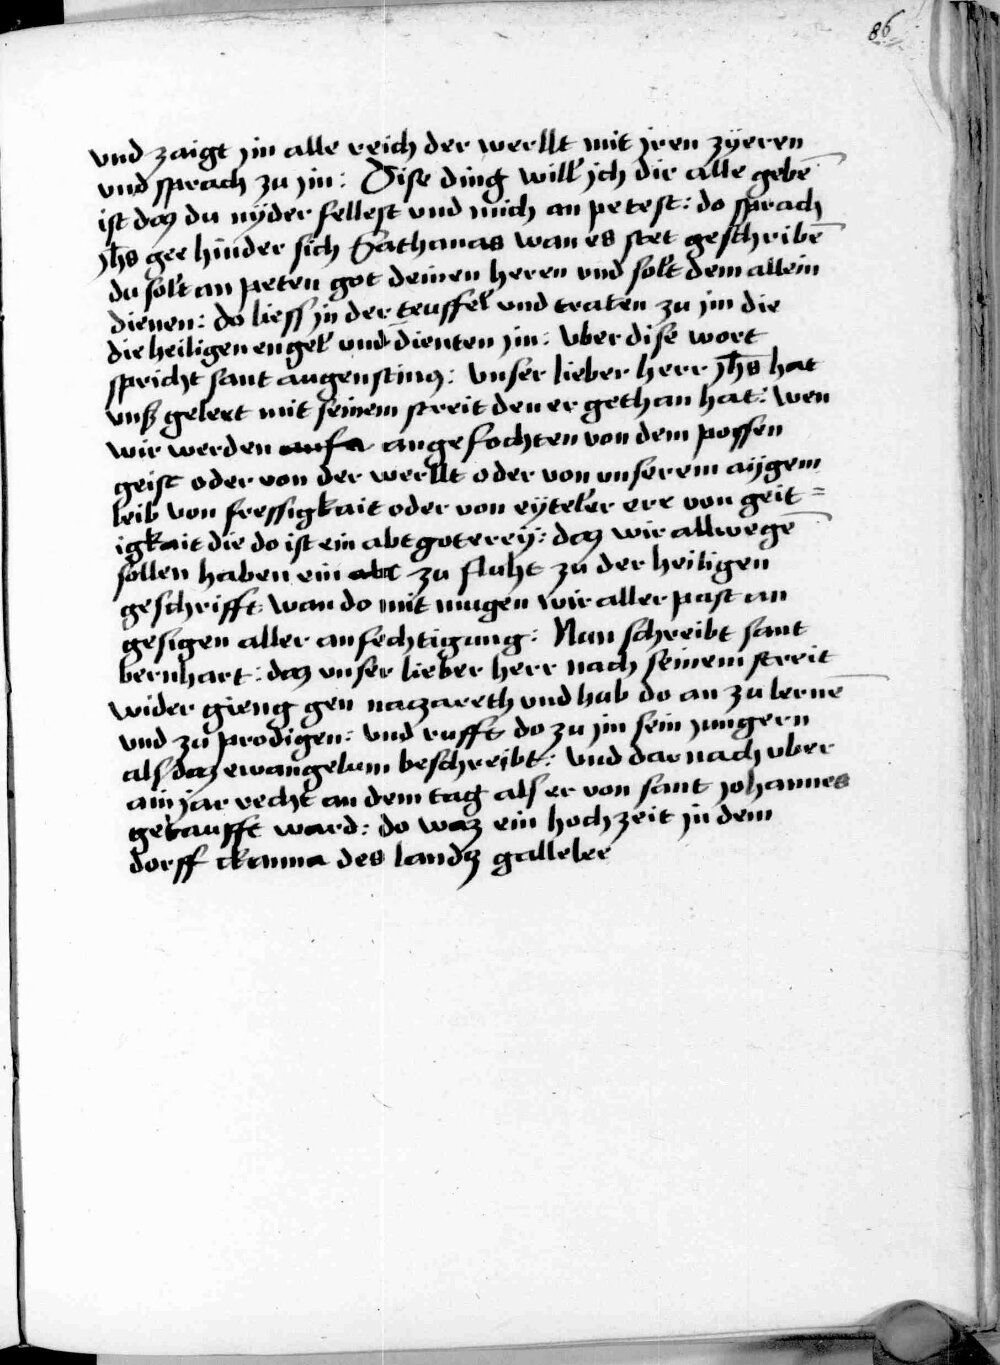 86
vnd zaigt jm alle reich der werllt mit jren zÿeren
vnd sprach zu jm: Dise ding will ich dir alle gebē
ist daz du nÿder fellest vnd mich an petest: do sprach
jhs gee hinder sich Sathanas wan es stet geschribē
du solt an peten got deinen heren vnd solt dem allein
dienen: do liess jn der teuffel vnd traten zu jm die
die heiligen engel vnd dienten jm: Vber dise wort
spricht sant augenstinus: vnser lieber herr jhs hat
vnß gelert mit seinem streit den er gethan hat: wen
wir werden anfa angefochten von dem possen
geist oder von der werllt oder von vnserem aÿgem
leib von fressigkait oder von eyteler ere von geit=
igkait die do ist ein abtgoterey: daz wir allwegē
sollen haben ein abt zu fluht zu der heiligen
geschrifft: wan do mit mugen wir aller past an
gesigen aller anfechtigung: Nun schreibt sant
bernhart: daz vnser lieber herr nach seinem streit
wider gieng gen nazareth vnd hub do an zu lernē
vnd zu prodigen: vnd rufft do zu jm sein jungern
als daz ewangelium beschreibt: vnd dar nach vber
ain jar recht an dem tag als er von sant johannes
getaufft ward: do waz ein hochzeit jn dem
dorff ckanna des landz gallelee